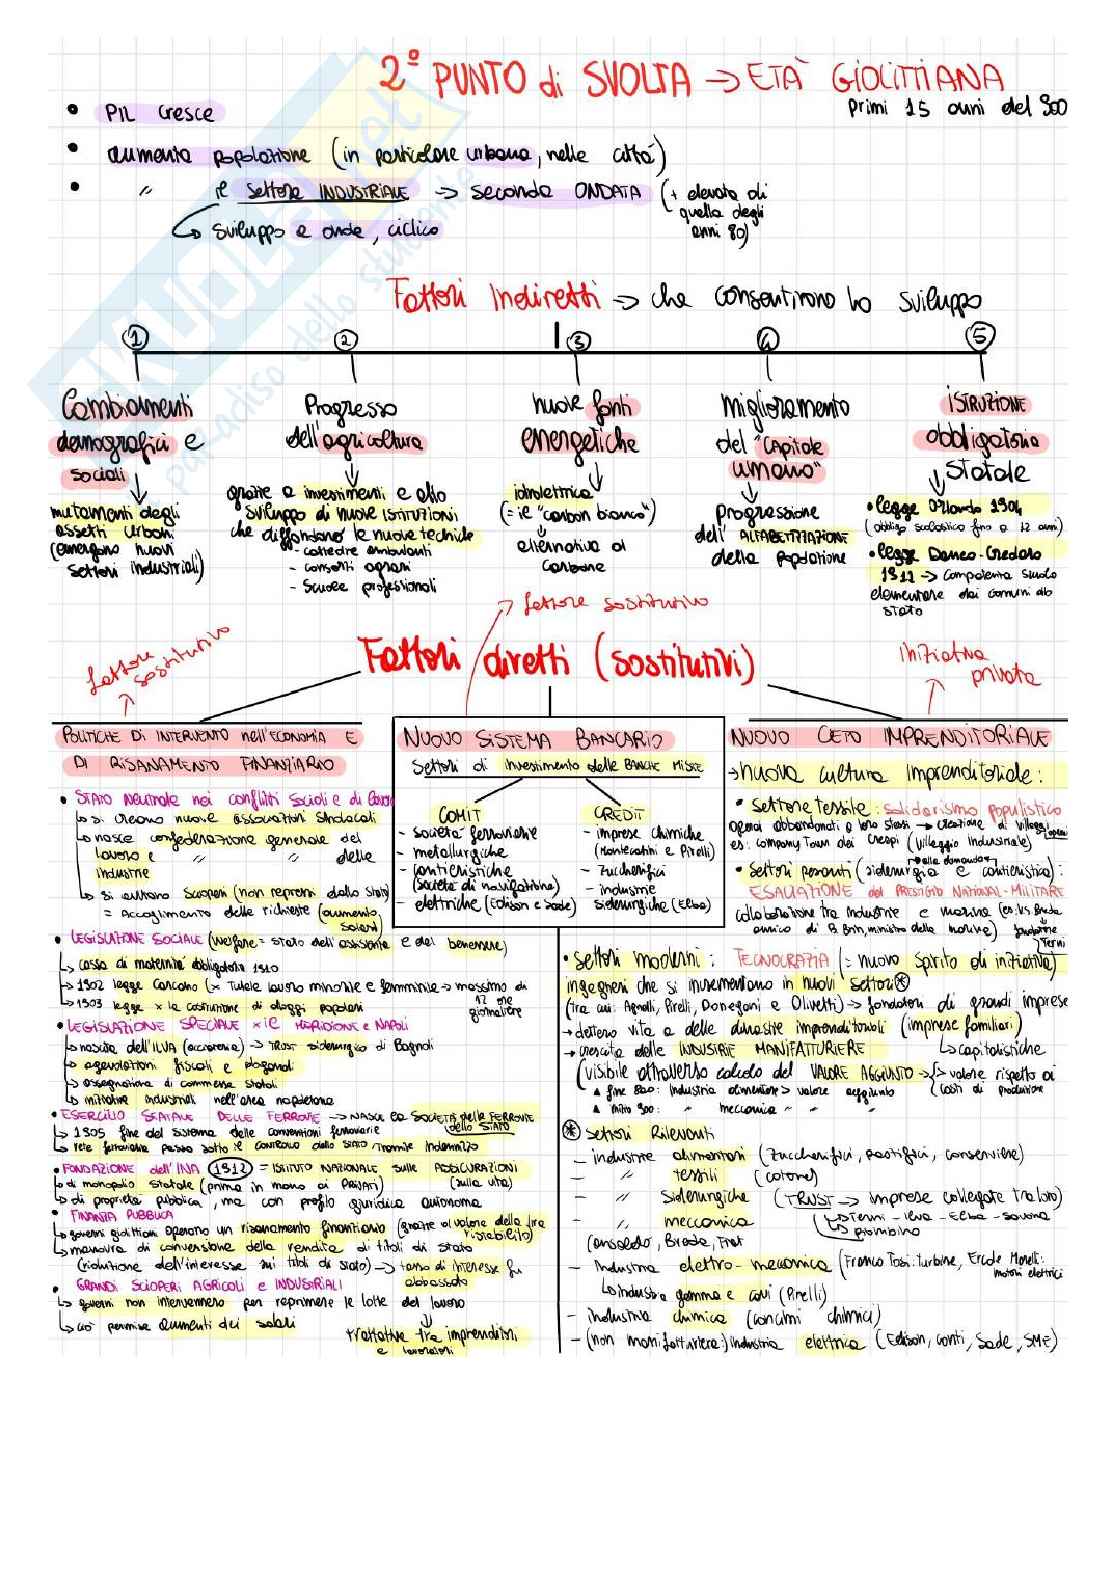 2° PUNTO di SVOLTA → ETÀ GIOLITTIANA
primi 15 anni del 900
• PIL cresce
• aumenta popolazione (in particolare urbana, nelle città)
• " il settore INDUSTRIALE → seconda ONDATA (+ elevata di quella degli anni 80)
↳ sviluppo a onde, ciclico
Fattori Indiretti → che consentirono lo sviluppo
1 2 3 4 5
Cambiamenti
demografici e
sociali
mutamenti degli
assetti urbani
(emergono nuovi
settori industriali)
Progresso
dell'agricoltura
grazie a investimenti e allo
sviluppo di nuove ISTITUZIONI
che diffondano le nuove tecniche
- cattedre ambulanti
- consorzi agrari
- scuole professionali
nuove fonti
energetiche
idroelettrica
(= il "carbon bianco")
alternativa al
carbone
Miglioramento
del "capitale
umano"
progressione
dell'ALFABETIZZAZIONE
della popolazione
ISTRUZIONE
obbligatoria
statale
• legge Orlando 1904
(obbligo scolastico fino a 12 anni)
• legge Daneo-Credaro
1912 → competenza scuola
elementare dai comuni allo
stato
fattore sostitutivo
fattore sostitutivo
iniziativa privata
Fattori diretti (sostitutivi)
POLITICHE DI INTERVENTO nell'ECONOMIA E
DI RISANAMENTO FINANZIARIO
• STATO neutrale nei conflitti sociali e di lavoro
↳ si creano nuove associazioni sindacali
↳ nasce confederazione generale del
lavoro e " " delle
industrie
↳ si autono scioperi (non repressi dallo stato)
= Accoglimento delle richieste (aumento
salari)
• LEGISLAZIONE SOCIALE (Welfare = stato dell'assistenza e del benessere)
↳ cassa di maternità obbligatoria 1910
↳ 1902 legge Carcano (x Tutela lavoro minorile e femminile → massimo di
12 ore
giornaliere
↳ 1903 legge x la costruzione di alloggi popolari
• LEGISLAZIONE SPECIALE x il MERIDIONE e NAPOLI
↳ nascita dell'ILVA (acciaieria) → TRUST siderurgico di Bagnoli
↳ agevolazioni fiscali e doganali
↳ assegnazione di commesse statali
↳ iniziative industriali nell'area napoletana
• ESERCIZIO STATALE DELLE FERROVIE → NASCE LA SOCIETÀ delle FERROVIE
dello STATO
↳ 1905 fine del sistema delle convenzioni ferroviarie
↳ rete ferroviaria passa sotto il CONTROLLO dello STATO Tramite Indennizzo
• FONDAZIONE dell'INA (1912) = ISTITUTO NAZIONALE sulle ASSICURAZIONI
(sulla vita)
↳ di monopolio statale (prima in mano ai PRIVATI)
↳ di proprietà pubblica, ma con profilo giuridico autonomo
• FINANZA PUBBLICA
↳ governi giolittiani operano un risanamento finanziario (grazie al valore della lira
ristabilito)
↳ manovra di conversione della rendita di titoli di stato
(riduzione dell'interesse sui titoli di stato) → tasso di interesse fu
abbassato
• GRANDI SCIOPERI AGRICOLI e INDUSTRIALI
↳ governi non intervennero per reprimere le lotte del lavoro
↳ ciò permise aumenti dei salari
trattative tra imprenditori
e lavoratori
NUOVO SISTEMA BANCARIO
Settori di investimento delle BANCHE MISTE
COMIT
- società ferroviarie
- metallurgiche
- cantieristiche
(società di navigazione)
- elettriche (Edison e Sade)
CREDIT
- imprese chimiche
(Montecatini e Pirelli)
- zuccherifici
- industrie
siderurgiche (Elba)
NUOVO CETO IMPRENDITORIALE
→ nuova cultura imprenditoriale:
• settore tessile: solidarismo populistico
operai abbandonati a loro stessi → creazione di villaggi operai
es: company Town dei Crespi (villaggio industriale)
• Settori pesanti (siderurgia e cantieristica):
alta domanda
ESALTAZIONE del PRESTIGIO NATIONAL-MILITARE
collaborazione tra industrie e marina (es: V.S. Breda
amico di B. Brin, ministro della marina)
fondazione
Terni
• Settori moderni: TECNOCRAZIA (= nuovo spirito di iniziativa)
ingegneri che si incrementano in nuovi settori *
(tra cui: Agnelli, Pirelli, Donegani e Olivetti) → fondatori di grandi imprese
→ dettero vita a delle dinastie imprenditoriali (imprese familiari)
↳ capitalistiche
→ crescita delle INDUSTRIE MANIFATTURIERE
(visibile attraverso calcolo del VALORE AGGIUNTO → > valore rispetto ai
costi di produzione
▲ fine 800: industria alimentare > valore aggiunto
▲ inizio 900: " meccanica " "
* settori Rilevanti
- industrie alimentari (zuccherifici, pastifici, conserviere)
- " tessili (cotone)
- " Siderurgiche (TRUST → imprese collegate tra loro)
↳ Terni - Ilva - Elba - Savona
Piombino
- " meccanica
(Ansaldo, Breda, Fiat
- industria elettro-meccanica (Franco Tosi: turbine, Ercole Marelli:
motori elettrici
↳ industria gomma e cavi (Pirelli)
- industria chimica (concimi chimici)
- (non manifatturiera:) industria elettrica (Edison, Conti, Sade, SME)